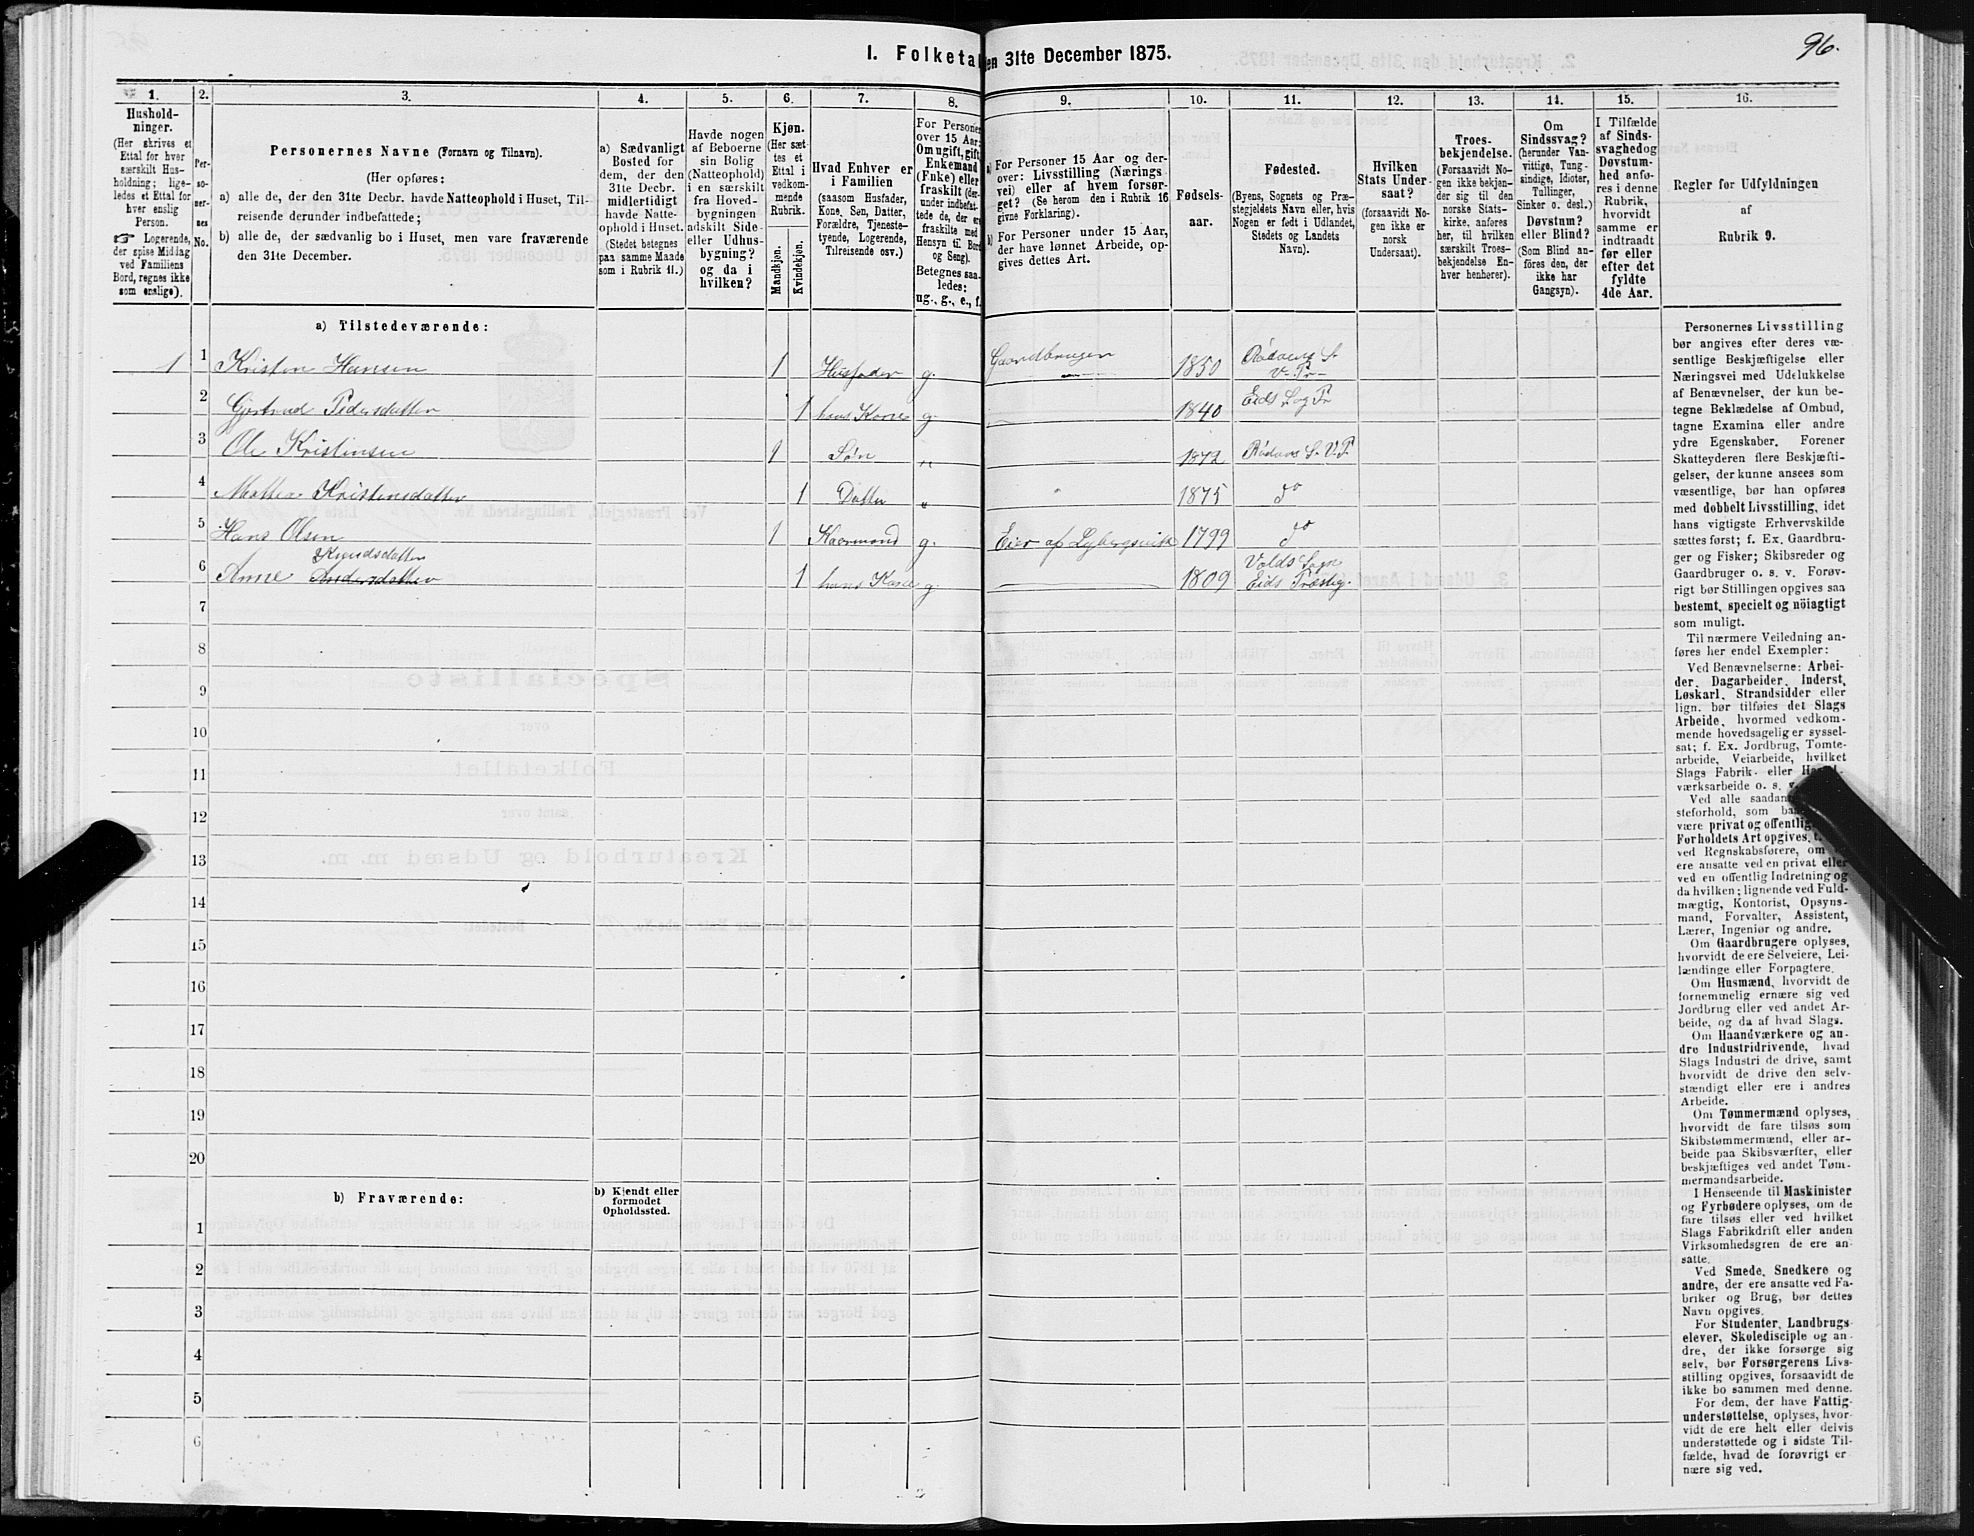 96.
1. Folketal en 31te December 1875.
1.
Hushold-
ninger.
(Her skrives et
Ettal for hver
særskilt Hus-
holdning; lige-
ledes et Ettal for
hver enslig
Person.
☞ Logerende,
der spise Middag
ved Familiens
Bord, regnes ikke
som enslige).
2.
Per-
so-
ner-
nes
No.
3.
Personernes Navne (Fornavn og Tilnavn).
(Her opføres:
a) alle de, der den 31te Decbr. havde Natteophold i Huset, Til-
reisende derunder indbefattede;
b) alle de, der sædvanlig bo i Huset, men vare fraværende
den 31te December.
4.
a) Sædvanligt
Bosted for
dem, der den
31te Decbr.
midlertidigt
havde Natte-
ophold i Huset.
(Stedet betegnes
paa samme Maade
som i Rubrik 11.)
5.
Havde nogen
af Beboerne
sin Bolig
(Natteophold)
i en særskilt
fra Hoved-
bygningen
adskilt Side-
eller Udhus-
bygning?
og da i
hvilken?
6.
Kjøn.
(Her sæt-
tes et
Ettal i
vedkom-
mende
Rubrik.
Mandkjøn.
Kvindekjøn.
7.
Hvad Enhver er
i Familien
(saasom Husfader,
Kone, Søn, Datter,
Forældre, Tjeneste-
tyende, Logerende,
Tilreisende osv.)
8.
For Personer
over 15 Aar:
Om ugift, gift,
Enkemand
(Enke) eller
fraskilt (der-
under indbefat-
tede de, der er
fraskilte med
Hensyn til Bord
og Seng).
Betegnes saa-
ledes:
ug., g., e., f.
9.
a) For Personer 15 Aar og der-
over: Livsstilling (Nærings
vei) eller af hvem forsør-
get? (Se herom den i Rubrik 16
givne Forklaring).
b) For Personer under 15 Aar,
der have lønnet Arbeide, op-
gives dettes Art.
10.
Fødsels-
aar.
11.
Fødested.
(Byens, Sognets og Præ-
stegjeldets Navn eller, hvis
Nogen er født i Udlandet,
Stedets og Landets
Navn).
12.
Hvilken
Stats Under-
saat?
(forsaavidt No-
gen ikke er
norsk
Undersaat).
13.
Troes-
bekjendelse.
(Forsaavidt No-
gen ikke bekjen-
der sig til den
norske Stats-
kirke, anføres
her, til hvilken
særskilt Troes-
bekjendelse En-
hver henhører).
14.
Om
Sindssvag?
(herunder Van-
vittige, Tung-
sindige, Idioter,
Tullinger,
Sinker o. desl.)
Døvstum?
eller Blind?
(Som Blind an-
føres den, der
ikke har
Gangsyn).
15.
I Tilfælde
af Sinds-
svaghed og
Døvstum-
hed anfø-
res i denne
Rubrik,
hvorvidt
samme er
indtraadt
før eller
efter det
fyldte
4de Aar.
16.
Regler for Udfyldningen
af
Rubrik 9.
a) Tilstedeværende:
1 1 Kristen Hansen 1 Husfader g. Gaardbruger 1850 S.
V. Pr
2 Gjertrud Pedersdatter 1 hans Kone g. 1840 Eids Sog Pr
3 Ole Kristensen 1 Søn " 1872 S. V. P
4 Mattea Kristensdatter 1 Datter " " 1875 do
5 Hans Olsen 1 Kaarmand g. Eier af 1799 do
Knudsdatter
6 Anne Andersdatter 1 hans Kone g. 1809 Volds Sogn
Eids Præstg.
7
8
9
10
11
12
13
14
15
16
17
18
19
20
b) Fraværende:
b) Kjendt eller
formodet
Opholdssted.
1
2
3
4
5
6
Personernes Livsstilling
bør angives efter deres væ-
sentlige Beskjæftigelse eller
Næringsvei med Udelukkelse
af Benævnelser, der kun be-
tegne Beklædelse af Ombud,
tagne Examina eller andre
ydre Egenskaber. Forener
Skatteyderen flere Beskjæfti-
gelser, der kunne ansees som
væsentlige, bør han opføres
med dobbelt Livsstilling, idet
hans vigtigste Erhvervskilde
sættes først; f. Ex. Gaardbru-
ger og Fisker; Skibsreder og
Gaardbruger o. s. v. Forøv-
rigt bør Stillingen opgives saa
bestemt, specielt og nöiagtigt
som muligt.
Til nærmere Veiledning an-
føres her endel Exempler:
Ved Benævnelserne: Arbei-
der, Dagarbeider, Inderst,
Løskarl, Strandsidder eller
lign. bør tilføies det Slags
Arbeide, hvormed vedkom-
mende hovedsagelig er syssel-
sat; f. Ex. Jordbrug, Tomte-
arbeide, Veiarbeide, hvilket
Slags Fabrik- eller
værksarbeide o. s. v.
Ved alle saadan
steforhold, som
være privat og offentlig
Forholdets Art opgives,
ved Regnskabsførere, om
ere ansatte ved en privat eller
ved en offentlig Indretning og
da hvilken; lignende ved Fuld-
mægtig, Kontorist, Opsyns-
mand, Forvalter, Assistent,
Lærer, Ingeniør og andre.
Om Gaardbrugere oplyses,
hvorvidt de ere Selveiere, Lei-
lændinge eller Forpagtere.
Om Husmænd, hvorvidt de
fornemmelig ernære sig ved
Jordbrug eller ved andet Ar-
beide, og da af hvad Slags.
Om Haandværkere og an-
dre Industridrivende, hvad
Slags Industri de drive, samt
hvorvidt de drive den selv-
stændigt eller ere i andres
Arbeide.
Om Tømmermænd oplyses,
hvorvidt de fare tilsøs som
Skibstømmermænd, eller ar-
beide paa Skibsværfter, eller
beskjæftiges ved andet Tøm-
mermandsarbeide.
I Henseende til Maskinister
og Fyrbødere oplyses, om de
fare tilsøs eller ved hvilket
Slags Fabrikdrift eller anden
Virksomhedsgren de ere an-
satte.
Ved Smede, Snedkere og
andre, der ere ansatte ved Fa-
briker og Brug, bør dettes
Navn opgives.
For Studenter, Landbrugs
elever, Skoledisciple og an-
dre, der ikke forsørge sig
selv, bør Forsørgerens Livs-
stilling opgives, forsaavidt de
ikke bo sammen med denne.
For dem, der have Fattig-
understøttelse, oplyses, hvor-
vidt de ere helt eller delvis
understøttede og i sidste Til-
fælde, hvad de forøvrigt er-
nære sig ved.